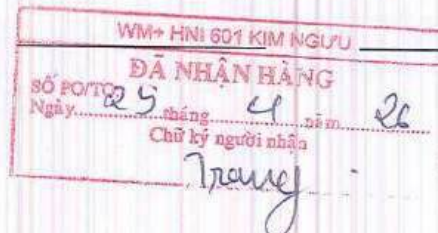 WM+ HNI 601 KIM NGƯU
ĐÃ NHẬN HÀNG
SỐ PO/TO
Ngày 25 tháng 4 năm 26
Chữ ký người nhận
Trang